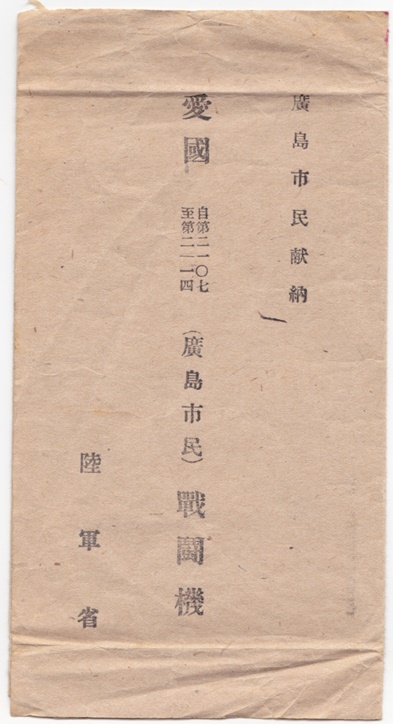 廣島市民献納
愛國 自第二一〇七 至第二一一四 (廣島市民) 戰鬪機
陸軍省